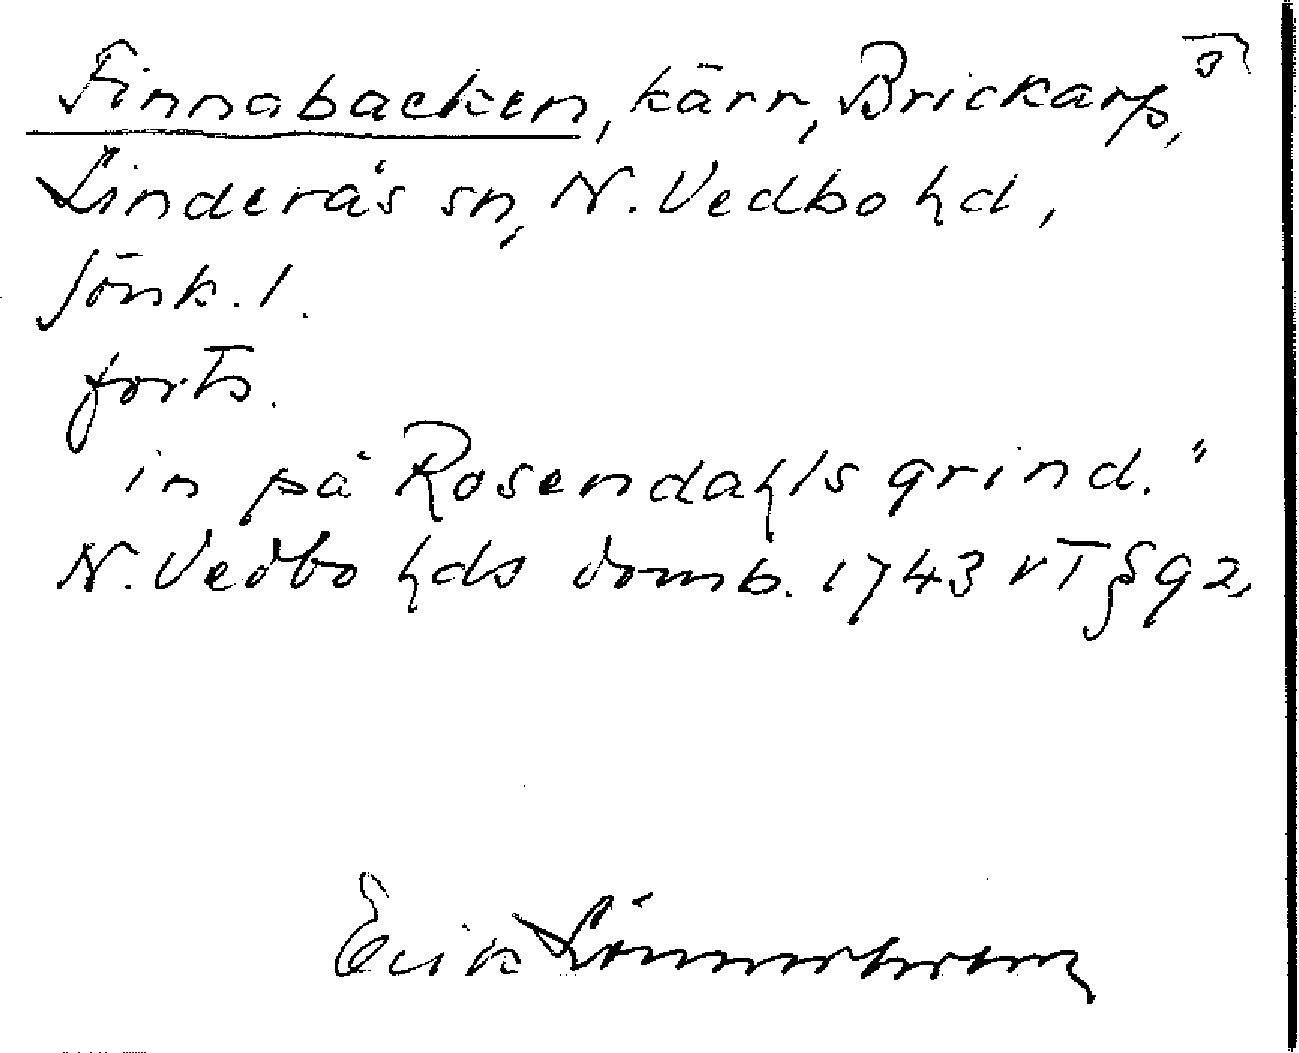 Finnabacken, kärr, Brickarp, 3)
Linderås sn, N. Vedbo hd,
Jönk. l.
forts.
in på Rosendahls grind."
N. Vedbo hds domb. 1743 vT § 92,
Erik